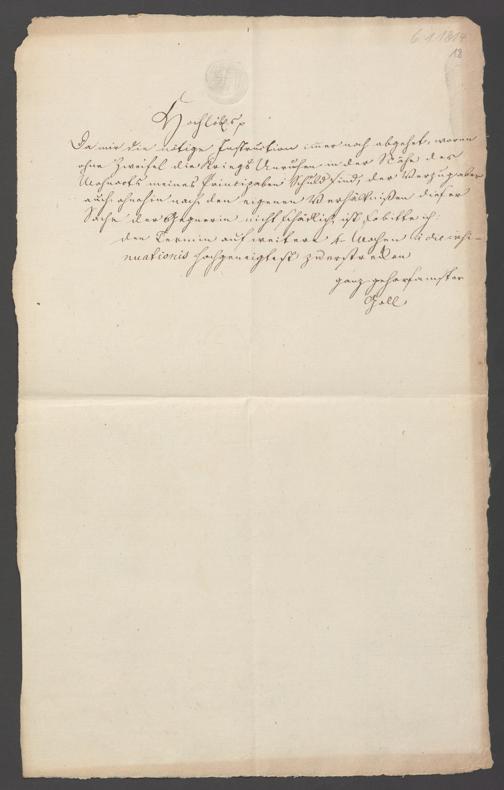 6.1.1814
18
Hochlöbl. p
Da mir die nötige Instruction immer noch abgehet, woran
ohne Zweifel die Kriegs Unruhen in der Nähe des
Wohnorts meines Principalen Schuld sind, der Verzug aber
auch ohnehin nach den eigenen Verhältnißen dieser
Sache der Gegnerin nicht schädlich ist, so bitte ich:
den Termin auf weitere 4 Wochen a die insi-
nuationis hochgeneigtest zu erstrecken
ganz gehorsamster